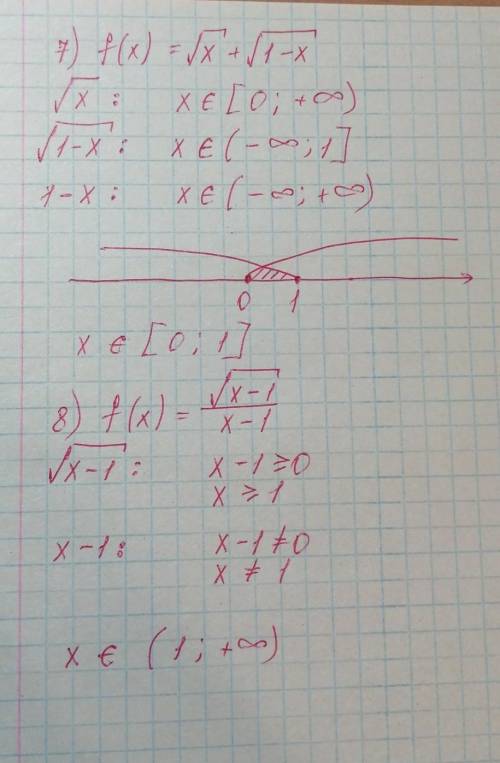 7) f(x) = √x + √1-x
√x : x ∈ [0; +∞)
√1-x : x ∈ (-∞; 1]
1-x : x ∈ (-∞; +∞)
0 1
x ∈ [0; 1]
8) f(x) = √x-1 / x-1
√x-1 : x-1 ≥ 0
x ≥ 1
x-1 : x-1 ≠ 0
x ≠ 1
x ∈ (1; +∞)